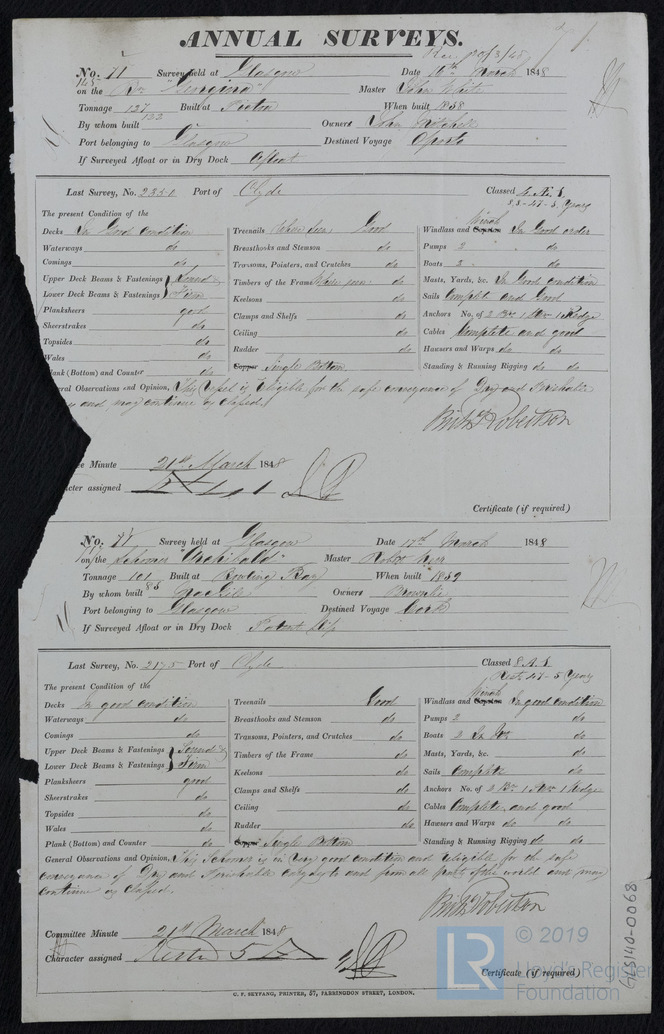 ANNUAL SURVEYS.
Rec. 20/3/48
No. 71 Survey held at Glasgow Date 16th March 1848
on the Master John White
Tonnage 127 Built at Picton When built 1838
133
By whom built Owners John Mitchell
Port belonging to Glasgow Destined Voyage Oporto
If Surveyed Afloat or in Dry Dock Afloat
Last Survey, No. 2351 Port of Clyde Classed
The present Condition of the
Decks In Good Condition Treenails Where seen Good Windlass and Capstan Winch In Good order
Waterways do Breasthooks and Stemson do Pumps 2 do
Comings do Transoms, Pointers, and Crutches do Boats 2 do
Upper Deck Beams & Fastenings Sound & Timbers of the Frame Where seen do Masts, Yards, &c. In Good condition
Lower Deck Beams & Fastenings Firm Keelsons do Sails Complete and Good
Planksheers good Clamps and Shelfs do Anchors No. of 2 Brs 1 Strm 1 Kedge
Sheerstrakes do Ceiling do Cables Complete and good
Topsides do Rudder do Hawsers and Warps do do
Wales do Copper Single Bottom Standing & Running Rigging do do
Plank (Bottom) and Counter do
General Observations and Opinion, This Vessel is eligible for the safe conveyance of Dry and Perishable
and may continue as Classed.
Robertson
Minute 21st March 1848
assigned
Certificate (if required)
No. 71 Survey held at Glasgow Date 17th March 1848
on the Schooner "Archibald" Master Robt
Tonnage 101 Built at Bowling Bay When built 1839
88
By whom built Owners Brownlie
Port belonging to Glasgow Destined Voyage Cork
If Surveyed Afloat or in Dry Dock Patent Slip
Last Survey, No. 2175 Port of Clyde Classed 8 A.1
Rest. 47 - 5 Years
The present Condition of the
Decks In good condition Treenails Good Windlass and Capstan Winch In good condition
Waterways do Breasthooks and Stemson do Pumps 2 do
Comings do Transoms, Pointers, and Crutches do Boats 2 do
Upper Deck Beams & Fastenings Sound & Timbers of the Frame do Masts, Yards, &c. do
Lower Deck Beams & Fastenings Firm Keelsons do Sails Complete do
Planksheers good Clamps and Shelfs do Anchors No. of 2 Brs 1 Strm 1 Kedge
Sheerstrakes do Ceiling do Cables Complete and good
Topsides do Rudder do Hawsers and Warps do do
Wales do Copper Single Bottom Standing & Running Rigging do do
Plank (Bottom) and Counter do
General Observations and Opinion, This Schooner is in Very good condition and eligible for the safe
conveyance of Dry and Perishable Cargoes to and from all parts of the world and may
continue as Classed.
Robertson
Committee Minute 21st March 1848
Character assigned Restd 5
Certificate (if required)
C. F. SEYFANG, PRINTER, 57, FARRINGDON STREET, LONDON.
© 2019
LR Lloyd's Register
Foundation
GLS140-0068